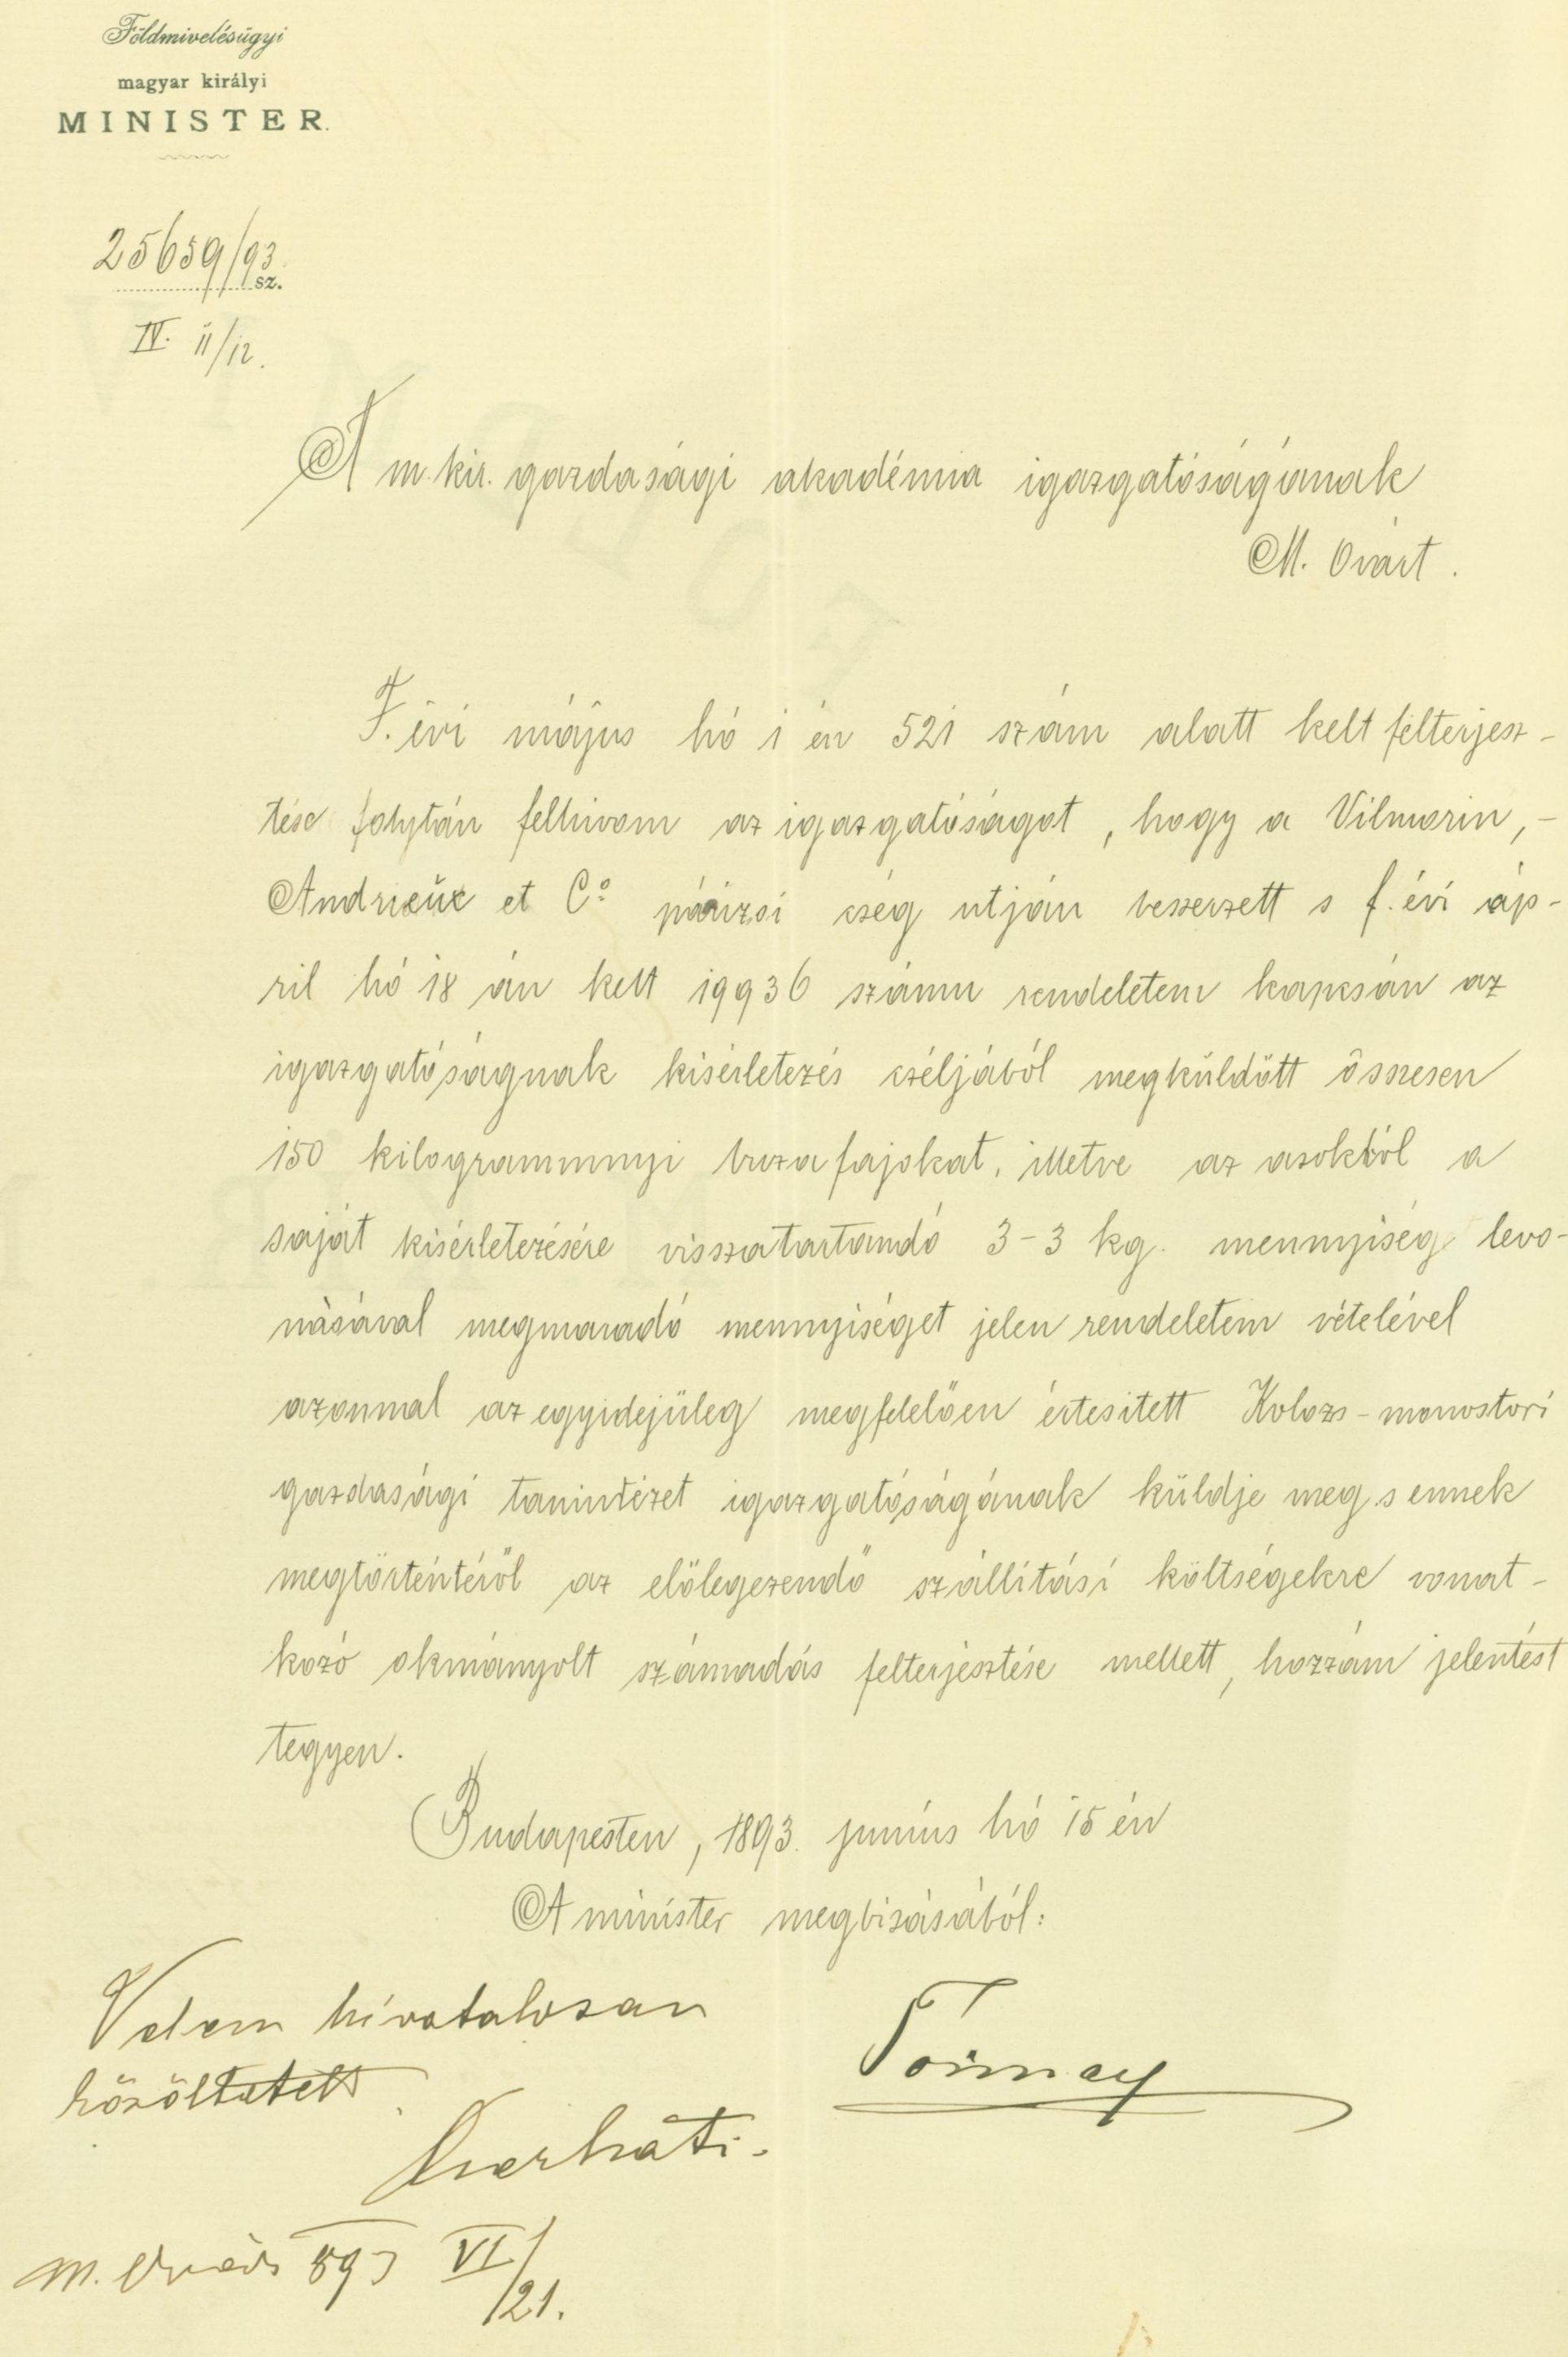 Földmivelésügyi
magyar királyi
MINISTER.
25659/93.
sz.
IV. 11/12.
A m. kir. gazdasági akadémia igazgatóságának
M. Ovárt.
F. évi május hó 1 én 521 szám alatt kelt felterjesz-
tése folytán felhivom az igazgatóságot, hogy a Vilmorin,-
Andrieux et Cº párizsi czég utján beszerzett s f. évi áp-
ril hó 18 án kelt 19936 számu rendeletem kapcsán az
igazgatóságnak kisérletezés czéljából megküldött összesen
150 kilogrammnyi buza fajokat, illetve az azokból a
saját kisérletezésére visszatartandó 3-3 kg. mennyiség levo-
násával megmaradó mennyiséget jelen rendeletem vételével
azonnal az egyidejüleg megfelelően értesitett Kolozs-monostori
gazdasági tanintézet igazgatóságának küldje meg s ennek
megtörténtéről az előlegezendő szállítási költségekre vonat-
kozó okmányolt számadás felterjesztése mellett, hozzám jelentést
tegyen.
Budapesten, 1893. junius hó 15 én
A minister megbizásából:
Velem hivatalosan
közöltetett.
Tormay
Cserháti.
M. Óvár 893 VI/21.